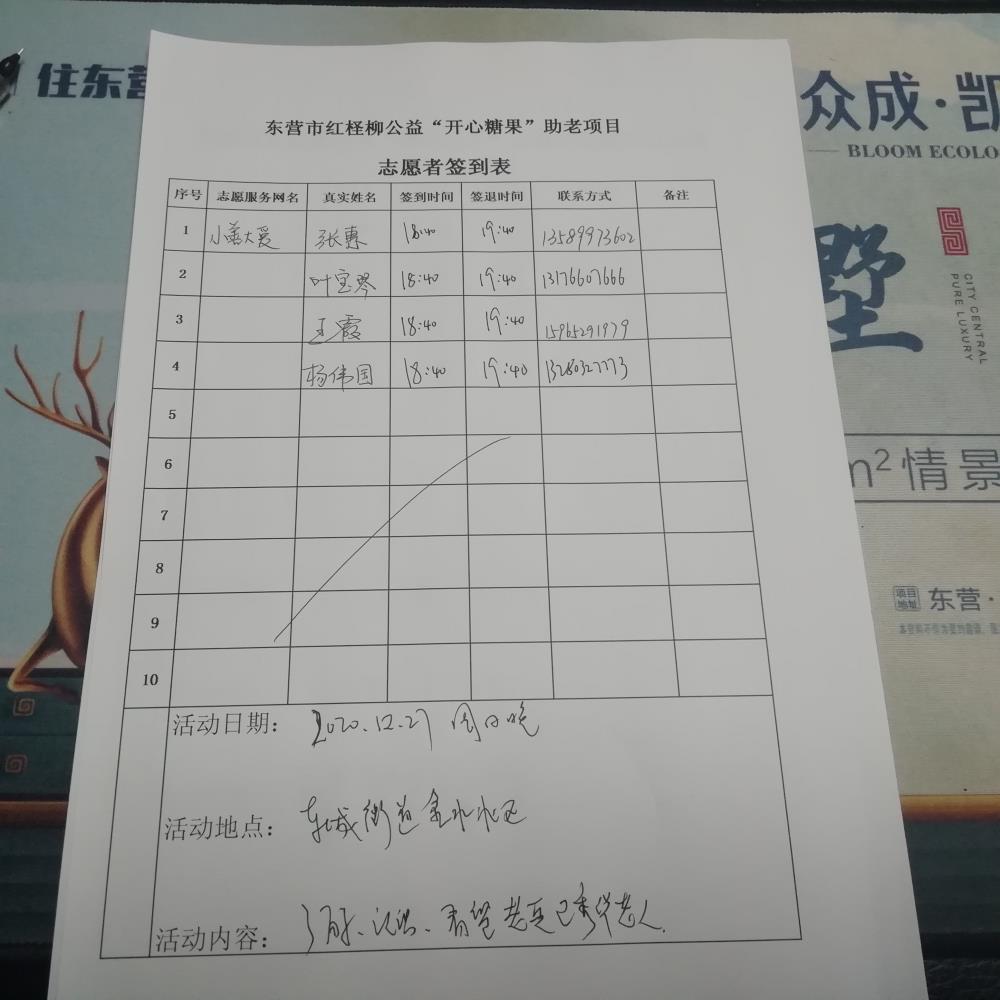 住东营
众成·凯
BLOOM ECOLO
墅
CITY CENTRAL
PURE LUXURY
m²情景
项目地址 东营·
东营市红柽柳公益“开心糖果”助老项目
志愿者签到表
序号 志愿服务网名 真实姓名 签到时间 签退时间 联系方式 备注
1 小善大爱 张惠 18:40 19:40 13589973602
2 叶宝琴 18:40 19:40 13176607666
3 王霞 18:40 19:40 15965291979
4 杨伟国 18:40 19:40 13280327773
5
6
7
8
9
10
活动日期: 2020.12.27 周日晚
活动地点: 东城街道金水
活动内容: 了解、